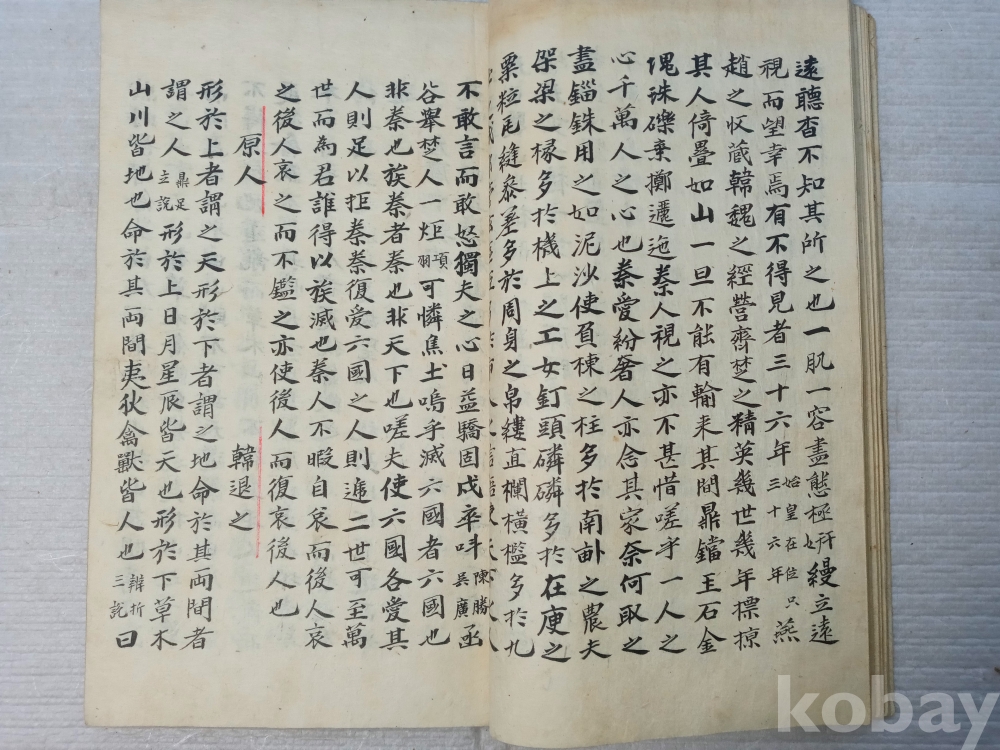 遠聽杳不知其所之也一肌一容盡態極妍縵立遠
視而望幸焉有不得見者三十六年始皇在位只三十六年燕
趙之收藏韓魏之經營齊楚之精英幾世幾年摽掠
其人倚疊如山一旦不能有輸来其間鼎鐺玉石金
塊珠礫棄擲邐迤秦人視之亦不甚惜嗟乎一人之
心千萬人之心也秦愛紛奢人亦念其家奈何取之
盡錙銖用之如泥沙使負棟之柱多於南畝之農夫
架梁之椽多於機上之工女釘頭磷磷多於在庾之
粟粒瓦縫叅差多於周身之帛縷直欄橫檻多於九
不敢言而敢怒獨夫之心日益驕固戍卒呌陳勝吳廣函
谷舉楚人一炬項羽可憐焦土嗚乎滅六國者六國也
非秦也族秦者秦也非天下也嗟夫使六國各愛其
人則足以拒秦秦復愛六國之人則遞二世可至萬
世而為君誰得以族滅也秦人不暇自哀而後人哀
之後人哀之而不鑑之亦使後人而復哀後人也
原人 韓退之
形於上者謂之天形於下者謂之地命於其両間者
謂之人鼎足立說形於上日月星辰皆天也形於下草木
山川皆地也命於其両間夷狄禽獸皆人也辨折三說曰
kobay